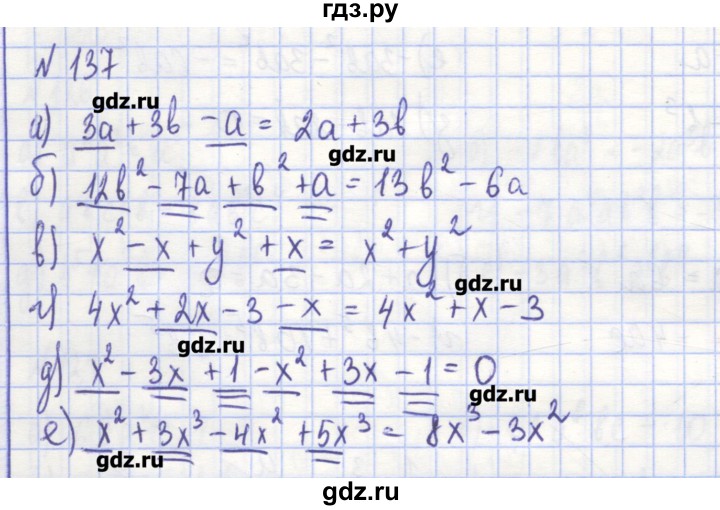 гдз.ру
№ 137
gdz.ru
а) 3a + 3b - a = 2a + 3b
gdz.ru
б) 12b² - 7a + b² + a = 13b² - 6a
в) x² - x + y² + x = x² + y²
gdz.ru
г) 4x² + 2x - 3 - x = 4x² + x - 3
gdz.ru
д) x² - 3x + 1 - x² + 3x - 1 = 0
е) x² + 3x³ - 4x² + 5x³ = 8x³ - 3x²
gdz.ru
gdz.ru
gdz.ru